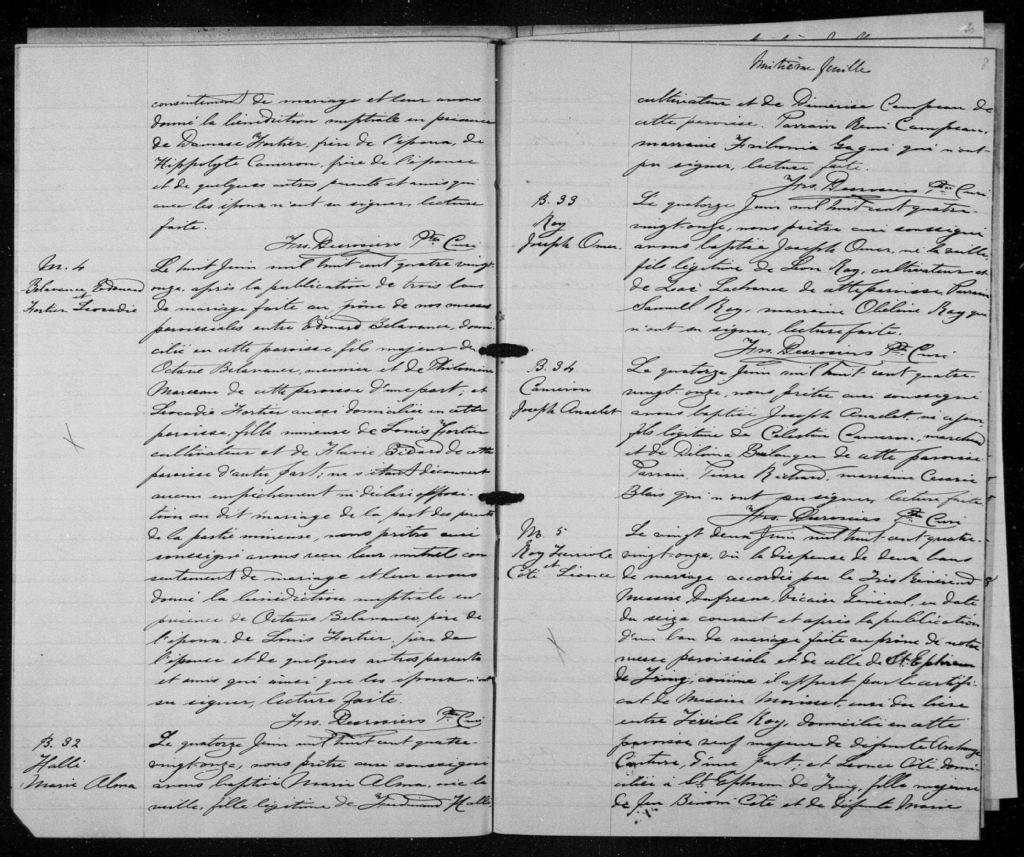 consentement de mariage et leur avons
donné la bénédiction nuptiale en présence
de Damase Fortier, frère de l'époux, de
Hippolyte Cameron, père de l'épouse
et de quelques autres parents et amis qui
avec les époux n'ont su signer, lecture
faite.
Jos. Desrosiers Ptre Curé
M. 4
Belavance Edouard
et
Fortier Leocadie
Le huit Juin mil huit cent quatre vingt
onze, après la publication de trois bans
de mariage faite au prône de nos messes
paroissiales entre Edouard Belavance, domi
cilié en cette paroisse, fils majeur de
Octave Belavance, meunier et de Philomène
Marceau de cette paroisse d'une part; et
Leocadie Fortier aussi domiciliée en cette
paroisse, fille mineure de Louis Fortier
cultivateur et de Flavie Bédard de cette
paroisse d'autre part; ne s'étant découvert
aucun empêchement ni déclaré opposi
tion au dit mariage de la part des parents
de la partie mineure, nous prêtre curé
soussigné avons reçu leur mutuel con
sentement de mariage et leur avons
donné la bénédiction nuptiale en
présence de Octave Belavance, père de
l'époux, de Louis Fortier, père de
l'épouse et de quelques autres parents
et amis qui ainsi que les époux n'ont
su signer, lecture faite.
Jos. Desrosiers Ptre Curé
B. 32
Hallé
Marie Alma
Le quatorze Juin mil huit cent quatre
vingt onze, nous prêtre curé soussigné
avons baptisé Marie Alma, née la
veille, fille légitime de Ferdinand Hallé
Huitième feuille
8
cultivateur et de Dimerise Campeau de
cette paroisse. Parrain Remi Campeau,
marraine Gagné qui n'ont
pu signer, lecture faite.
Jos. Desrosiers Ptre Curé
B. 33
Roy
Joseph Omer
Le quatorze Juin mil huit cent quatre
vingt onze, nous prêtre curé soussigné
avons baptisé Joseph Omer, né la veille,
fils légitime de Léon Roy, cultivateur et
de Lachance de cette paroisse, Parrain
Samuel Roy, marraine Roy qui
n'ont su signer, lecture faite.
Jos. Desrosiers Ptre Curé
B. 34
Cameron
Joseph Anaclet
Le quatorze Juin mil huit cent quatre
vingt onze, nous prêtre curé soussigné
avons baptisé Joseph Anaclet né ce jour
fils légitime de Celestin Cameron, marchand
et de Delvina Boulanger de cette paroisse.
Parrain Pierre Richard, marraine Cesarie
Blais qui n'ont pu signer, lecture faite.
Jos. Desrosiers Ptre Curé
M. 5
Roy Ferriole
et
Côté Léonce
Le vingt deux Juin mil huit cent quatre
vingt onze, vu la dispense de deux bans
de mariage accordée par le Très Révérend
Messire Dufresne Vicaire Général, en date
du seize courant et après la publication
d'un ban de mariage faite au prône de notre
messe paroissiale et de celle de St. Ephrem
de Tring, comme il appert par le certifi
cat de Messire Morisset curé du lieu
entre Roy, domicilié en cette
paroisse, veuf majeur de défunte Archange
Couture, d'une part, et Léonce Côté domi
ciliée à St. Ephrem de Tring, fille majeure
de feu Benoni Côté et de défunte Marie